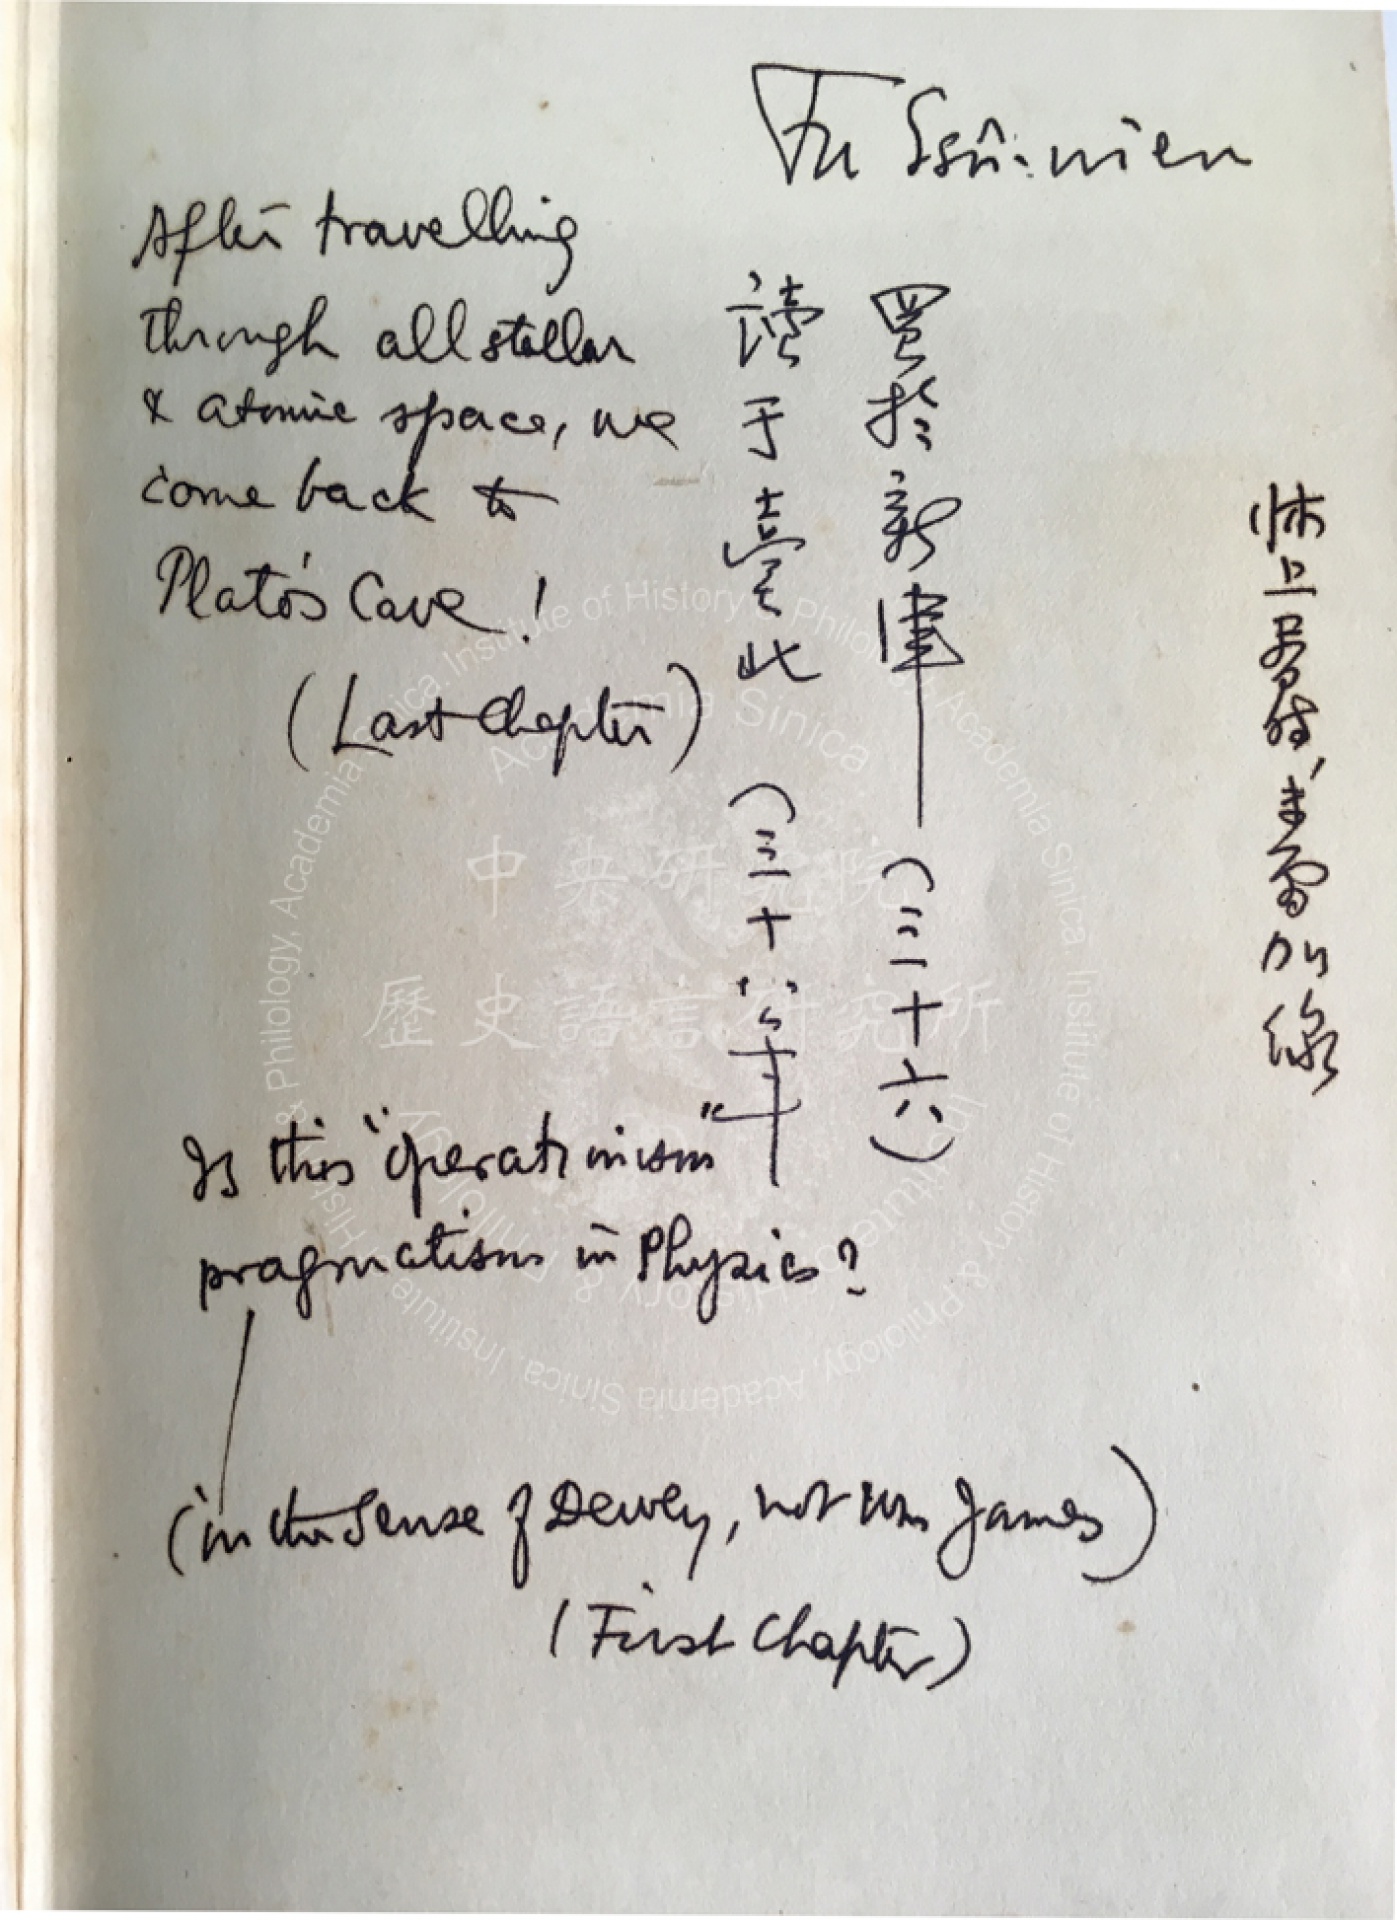 Fu Ssŭ-nien
床上看 加線
買於新津——(三十六)
讀于臺北(三十八年
After travelling
through all stellar
& atomic space, we
come back to
Plato's Cave!
(Last Chapter)
Is this "operationism"
pragmatism in Physics?
(in the sense of Dewey, not Wm James)
(First Chapter)
中央研究院
歷史語言研究所
Academia Sinica
Institute of History & Philology, Academia Sinica.